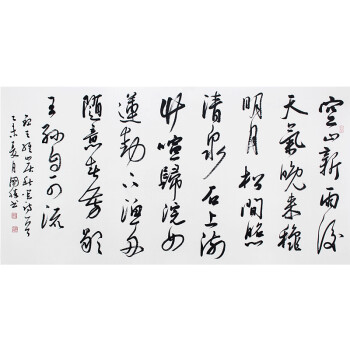 空山新雨後
天氣晚来穐
明月松間照
清泉石上流
竹喧歸浣女
蓮動下漁舟
隨意春芳歇
王孫自可流
王維山居秋暝诗一首
乙未夏月國书